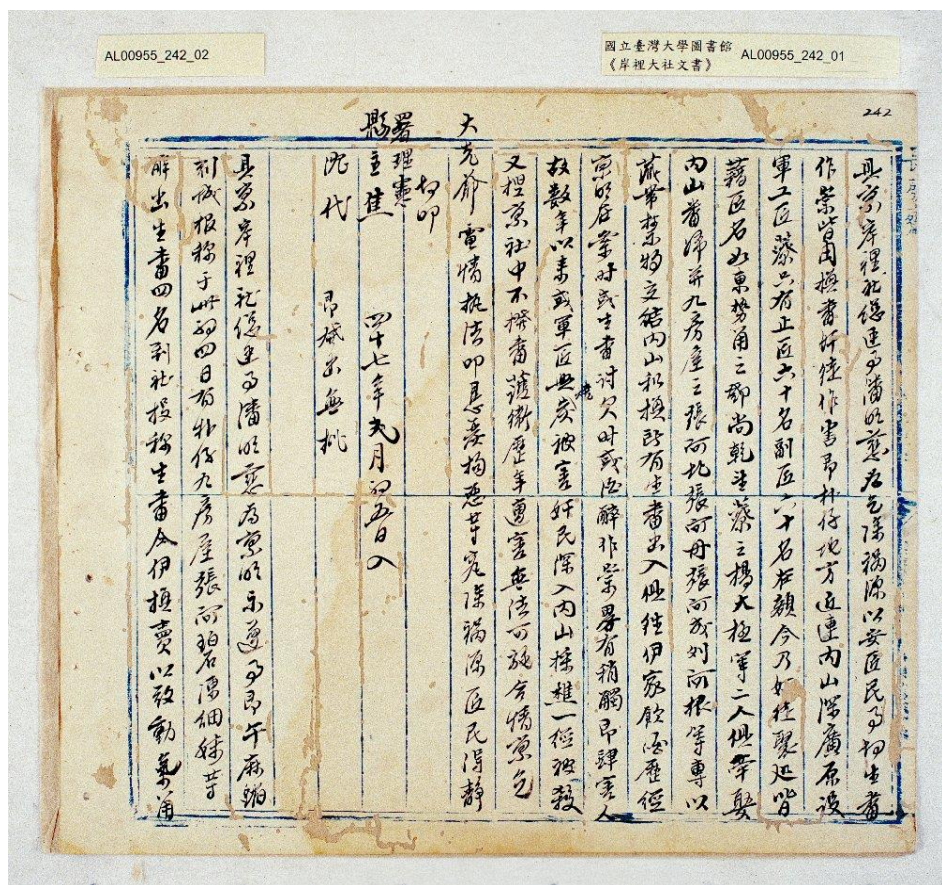 AL00955_242_02
國立臺灣大學圖書館
《岸裡大社文書》
AL00955_242_01
242
具稟岸裡社總通事潘明慈為乞除禍源以安匠民事切生番
作祟皆由撫番奸徒作害即朴仔地方近連內山深廣原設
軍工匠藔只有正匠六十名副匠六十名在額今乃奸徒聚廷皆
藉匠名如東勢角之鄧尚乾生藔之楊大極等二人俱牽娶
內山番婦并九房屋之張阿北張阿丹張阿成刘阿根等專以
蔴帶禁物交結內山私換所有生番出入俱往伊家飲酒歷經
稟明在案时或生番討欠叶或酒醉作祟畧有稍觸即肆害人
故數年以来或軍匠與炭被害奸民深入內山採樵一經被殺
又捏稟社中不撥番護衛歷年遭害無法可施合情稟乞
大老爺電情执法叩恳憂拘惡等究除禍源匠民得静
切叩
署理憲
縣主焦 四十七年弍月初五日入
沈代 即岸出無批
具稟岸裡社總通事潘明慈為稟明示遵事即午麻薯
刘城报称于此初四日有朴仔九房屋張阿碧凍細妹等
解出生番四名到社投称生番今伊換賣以致動氣角